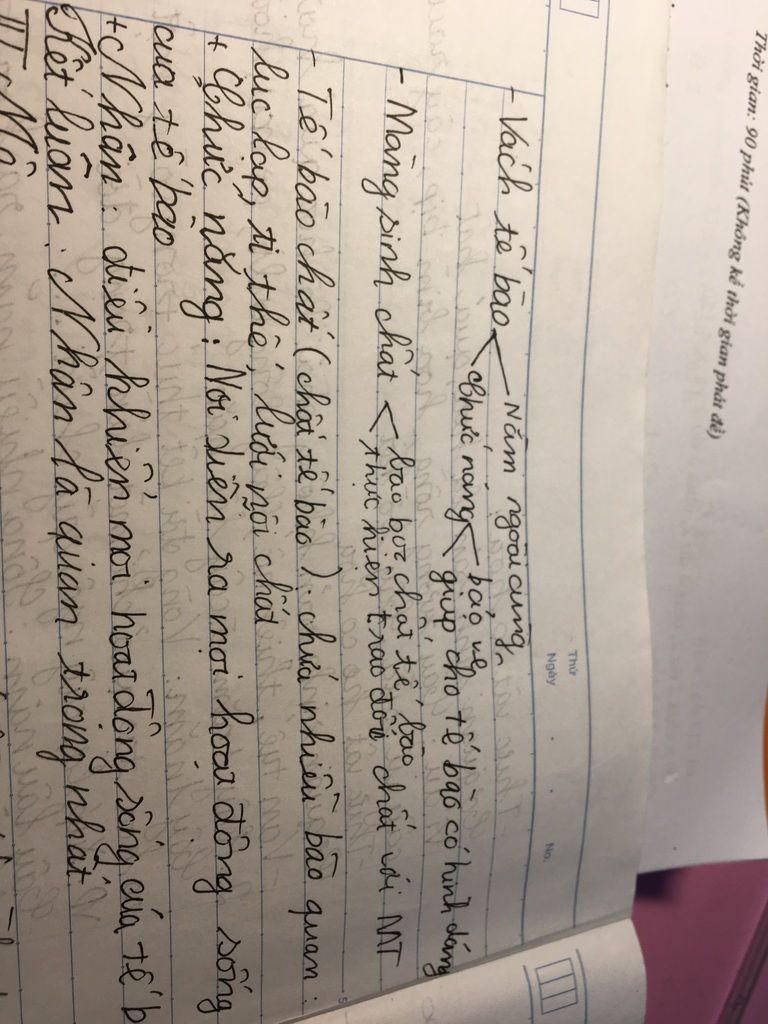 Thời gian: 90 phút (Không kể thời gian phát đề)
Thứ
Ngày
No.
- Vách tế bào < Nằm ngoài cùng
Chức năng < bảo vệ
giúp cho tế bào có hình dáng
- Màng sinh chất < bao bọc chất tế bào
thực hiện trao đổi chất với MT
- Tế bào chất (chất tế bào): chứa nhiều bào quan:
lục lạp, ti thể, lưới nội chất
+ Chức năng: Nơi diễn ra mọi hoạt động sống
của tế bào
+ Nhân: điều khiển mọi hoạt động sống của tế b
Kết luận: Nhân là quan trọng nhất
III. Mô